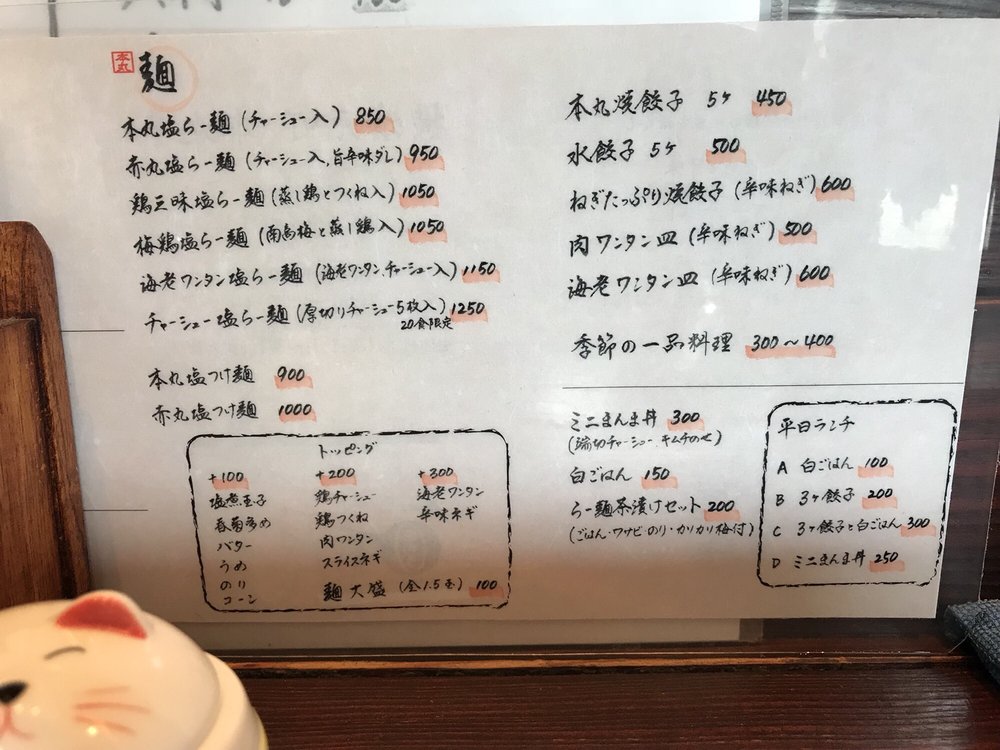 本丸
麺
本丸塩らー麺(チャーシュー入) 850
赤丸塩らー麺(チャーシュー入,旨辛味ダレ) 950
鶏三昧塩らー麺(蒸し鶏とつくね入) 1050
梅鶏塩らー麺(南高梅と蒸し鶏入) 1050
海老ワンタン塩らー麺(海老ワンタンチャーシュー入) 1150
チャーシュー塩らー麺(厚切りチャーシュー5枚入) 1250
20食限定
本丸塩つけ麺 900
赤丸塩つけ麺 1000
トッピング
+100 +200 +300
塩煮玉子 鶏チャーシュー 海老ワンタン
春菊多め 鶏つくね 辛味ネギ
バター 肉ワンタン
うめ スライスネギ
のり
コーン 麺大盛(全1.5玉) 100
本丸焼餃子 5ヶ 450
水餃子 5ヶ 500
ねぎたっぷり焼餃子(辛味ねぎ) 600
肉ワンタン皿(辛味ねぎ) 500
海老ワンタン皿(辛味ねぎ) 600
季節の一品料理 300〜400
ミニまんま丼 300
(端切チャーシュー キムチのせ)
白ごはん 150
らー麺茶漬けセット 200
(ごはん・ワサビ のり・カリカリ梅付)
平日ランチ
A 白ごはん 100
B 3ヶ餃子 200
C 3ヶ餃子と白ごはん 300
D ミニまんま丼 250